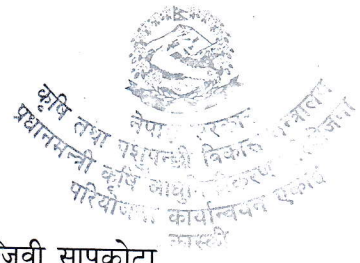 नेपाल सरकार
कृषि तथा पशुपन्छी विकास मन्त्रालय
प्रधानमन्त्री कृषि आधुनिकीकरण परियोजना
परियोजना कार्यान्वयन एकाई
कास्की
जिवी सापकोटा